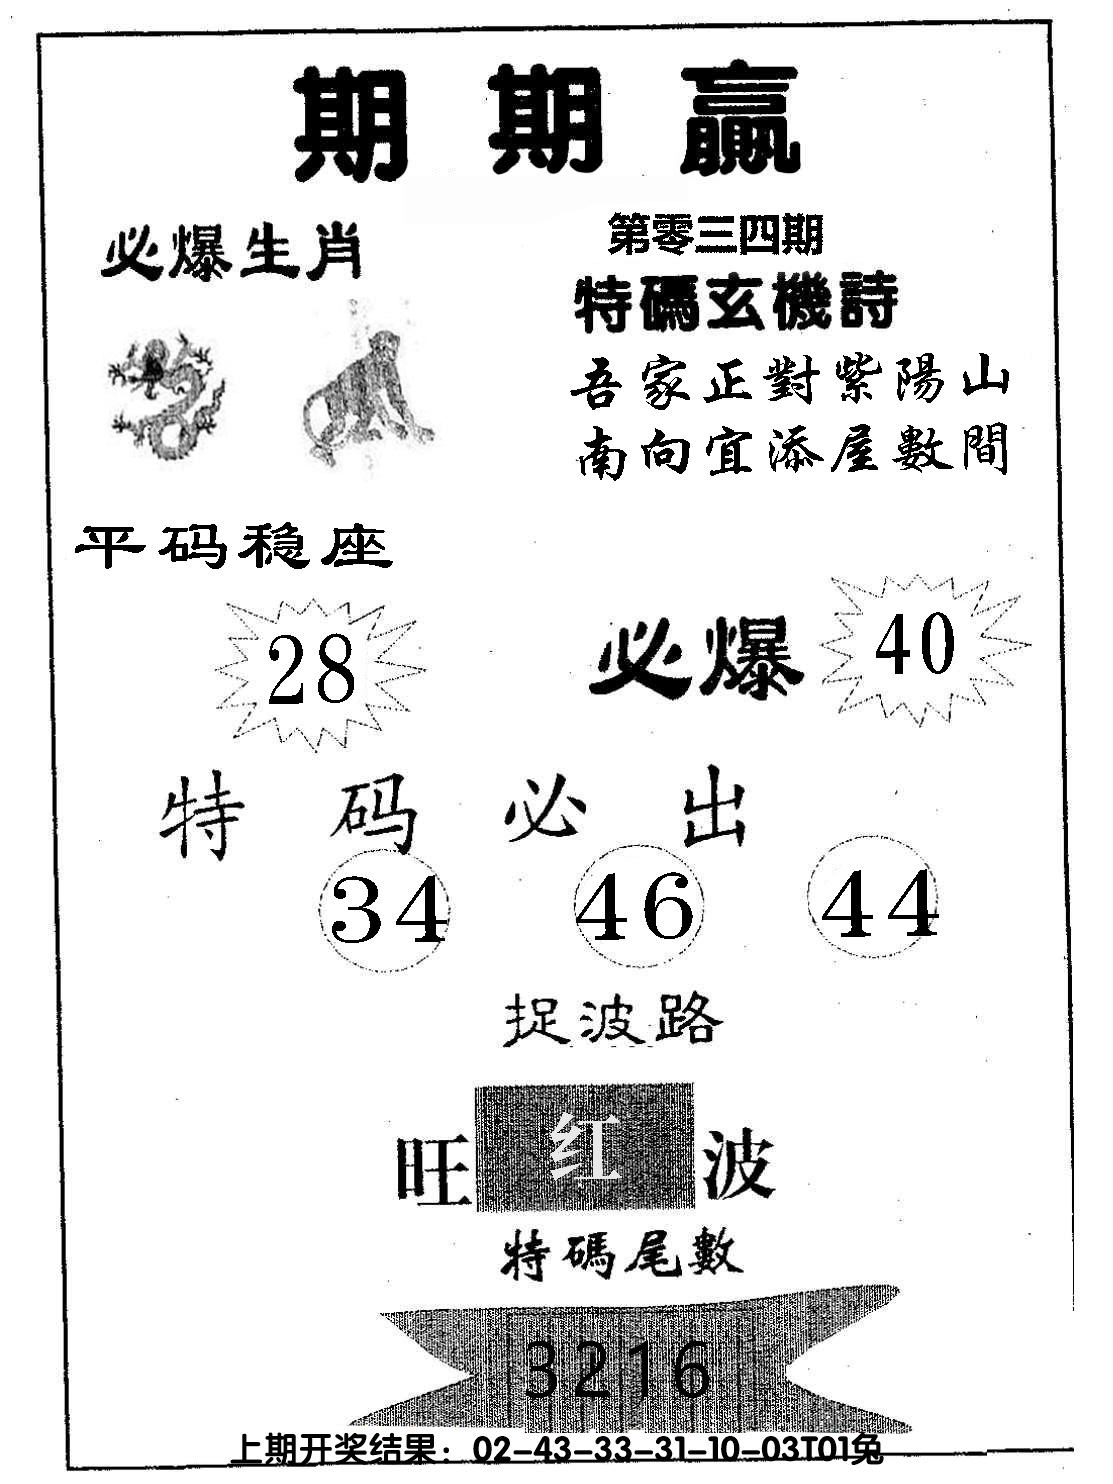 期期贏
必爆生肖
第零三四期
特碼玄機詩
吾家正對紫陽山
南向宜添屋數間
平码稳座
28
必爆
40
特码必出
34 46 44
捉波路
旺红波
特碼尾數
3216
上期开奖结果：02-43-33-31-10-03T01兔